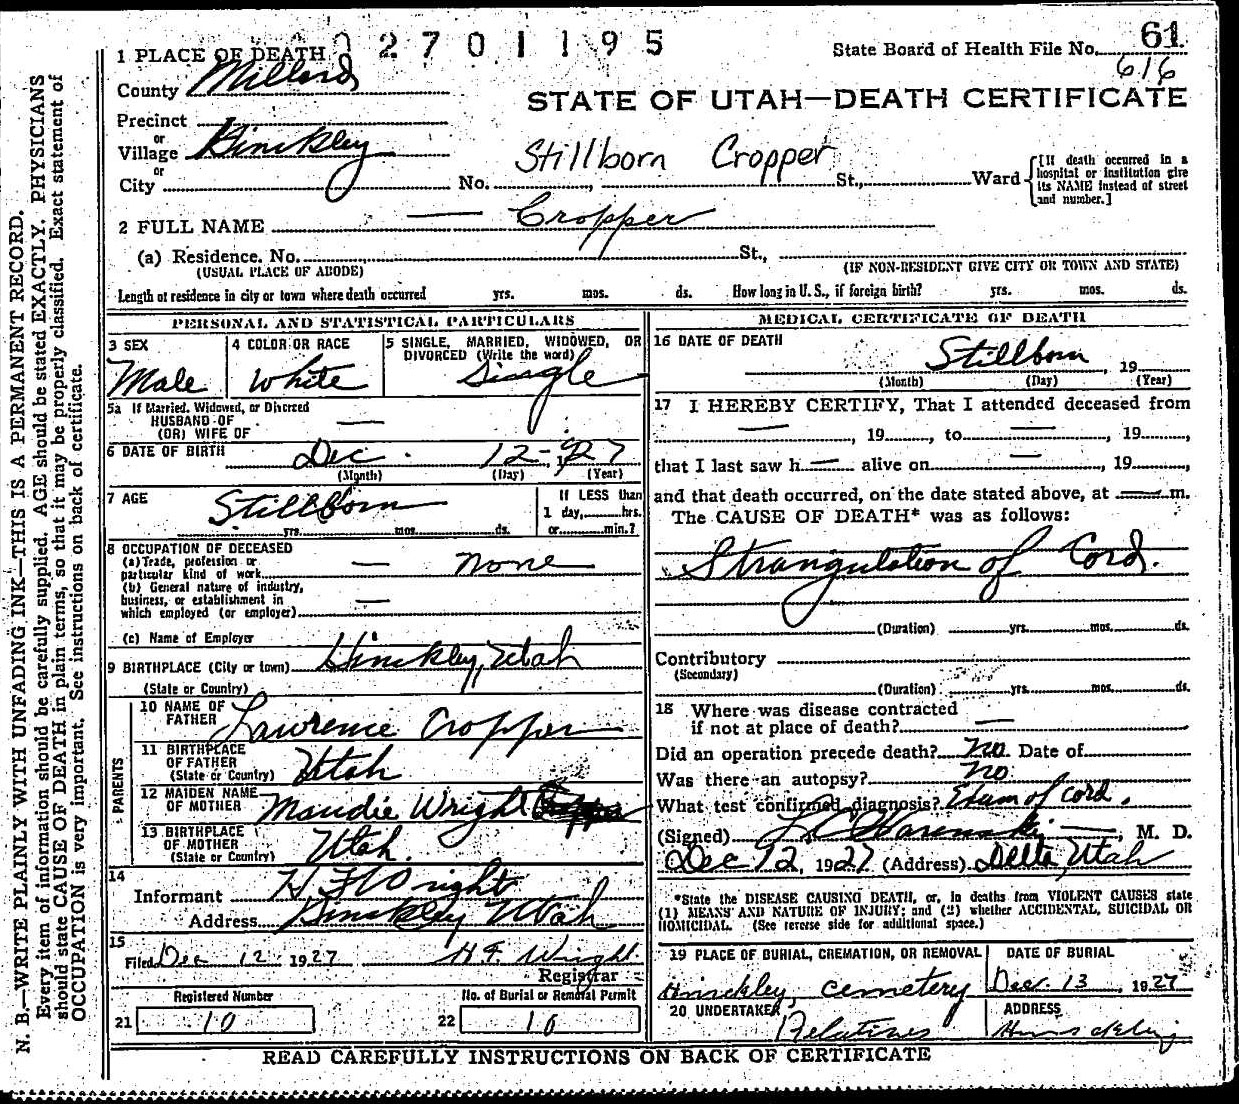 2701195
State Board of Health File No. 61
616
1 PLACE OF DEATH
County Millard
STATE OF UTAH—DEATH CERTIFICATE
Precinct
or
Village Hinckley
or
City No. St., Ward
Stillborn Cropper
[If death occurred in a hospital or institution give its NAME instead of street and number.]
2 FULL NAME — Cropper
(a) Residence. No. St.,
(USUAL PLACE OF ABODE) (IF NON-RESIDENT GIVE CITY OR TOWN AND STATE)
Length of residence in city or town where death occurred yrs. mos. ds. How long in U. S., if foreign birth? yrs. mos. ds.
PERSONAL AND STATISTICAL PARTICULARS
3 SEX Male
4 COLOR OR RACE White
5 SINGLE, MARRIED, WIDOWED, OR DIVORCED (Write the word) Single
5a If Married, Widowed, or Divorced
HUSBAND OF
(OR) WIFE OF —
6 DATE OF BIRTH Dec. 12 - 1927
(Month) (Day) (Year)
7 AGE Stillborn
yrs. mos. ds.
If LESS than
1 day, hrs.
or min.?
8 OCCUPATION OF DECEASED
(a) Trade, profession or
particular kind of work — none
(b) General nature of industry,
business, or establishment in
which employed (or employer) —
(c) Name of Employer
9 BIRTHPLACE (City or town) Hinckley, Utah
(State or Country)
PARENTS
10 NAME OF FATHER Lawrence Cropper
11 BIRTHPLACE OF FATHER (State or Country) Utah
12 MAIDEN NAME OF MOTHER Maudie Wright
13 BIRTHPLACE OF MOTHER (State or Country) Utah.
14
Informant H F Wright
Address Hinckley Utah
15
Filed Dec 12 1927 H F. Wright
Registrar
Registered Number
21 10
No. of Burial or Removal Permit
22 10
MEDICAL CERTIFICATE OF DEATH
16 DATE OF DEATH
Stillborn, 19
(Month) (Day) (Year)
17 I HEREBY CERTIFY, That I attended deceased from
—, 19, to —, 19,
that I last saw h— alive on —, 19,
and that death occurred, on the date stated above, at — m.
The CAUSE OF DEATH* was as follows:
Strangulation of Cord.
(Duration) yrs. mos. ds.
Contributory
(Secondary)
(Duration) yrs. mos. ds.
18 Where was disease contracted
if not at place of death? —
Did an operation precede death? No Date of
Was there an autopsy? no
What test confirmed diagnosis? Exam of cord.
(Signed) M. D.
Dec 12, 1927 (Address) Delta, Utah
*State the DISEASE CAUSING DEATH, or, in deaths from VIOLENT CAUSES state
(1) MEANS AND NATURE OF INJURY; and (2) whether ACCIDENTAL, SUICIDAL OR
HOMICIDAL. (See reverse side for additional space.)
19 PLACE OF BURIAL, CREMATION, OR REMOVAL
Hinckley, cemetery
DATE OF BURIAL
Dec. 13, 1927
20 UNDERTAKER
Relatives
ADDRESS
Hinckley
READ CAREFULLY INSTRUCTIONS ON BACK OF CERTIFICATE
N. B.—WRITE PLAINLY WITH UNFADING INK—THIS IS A PERMANENT RECORD.
Every item of information should be carefully supplied. AGE should be stated EXACTLY. PHYSICIANS
should state CAUSE OF DEATH in plain terms, so that it may be properly classified. Exact statement of
OCCUPATION is very important. See instructions on back of certificate.